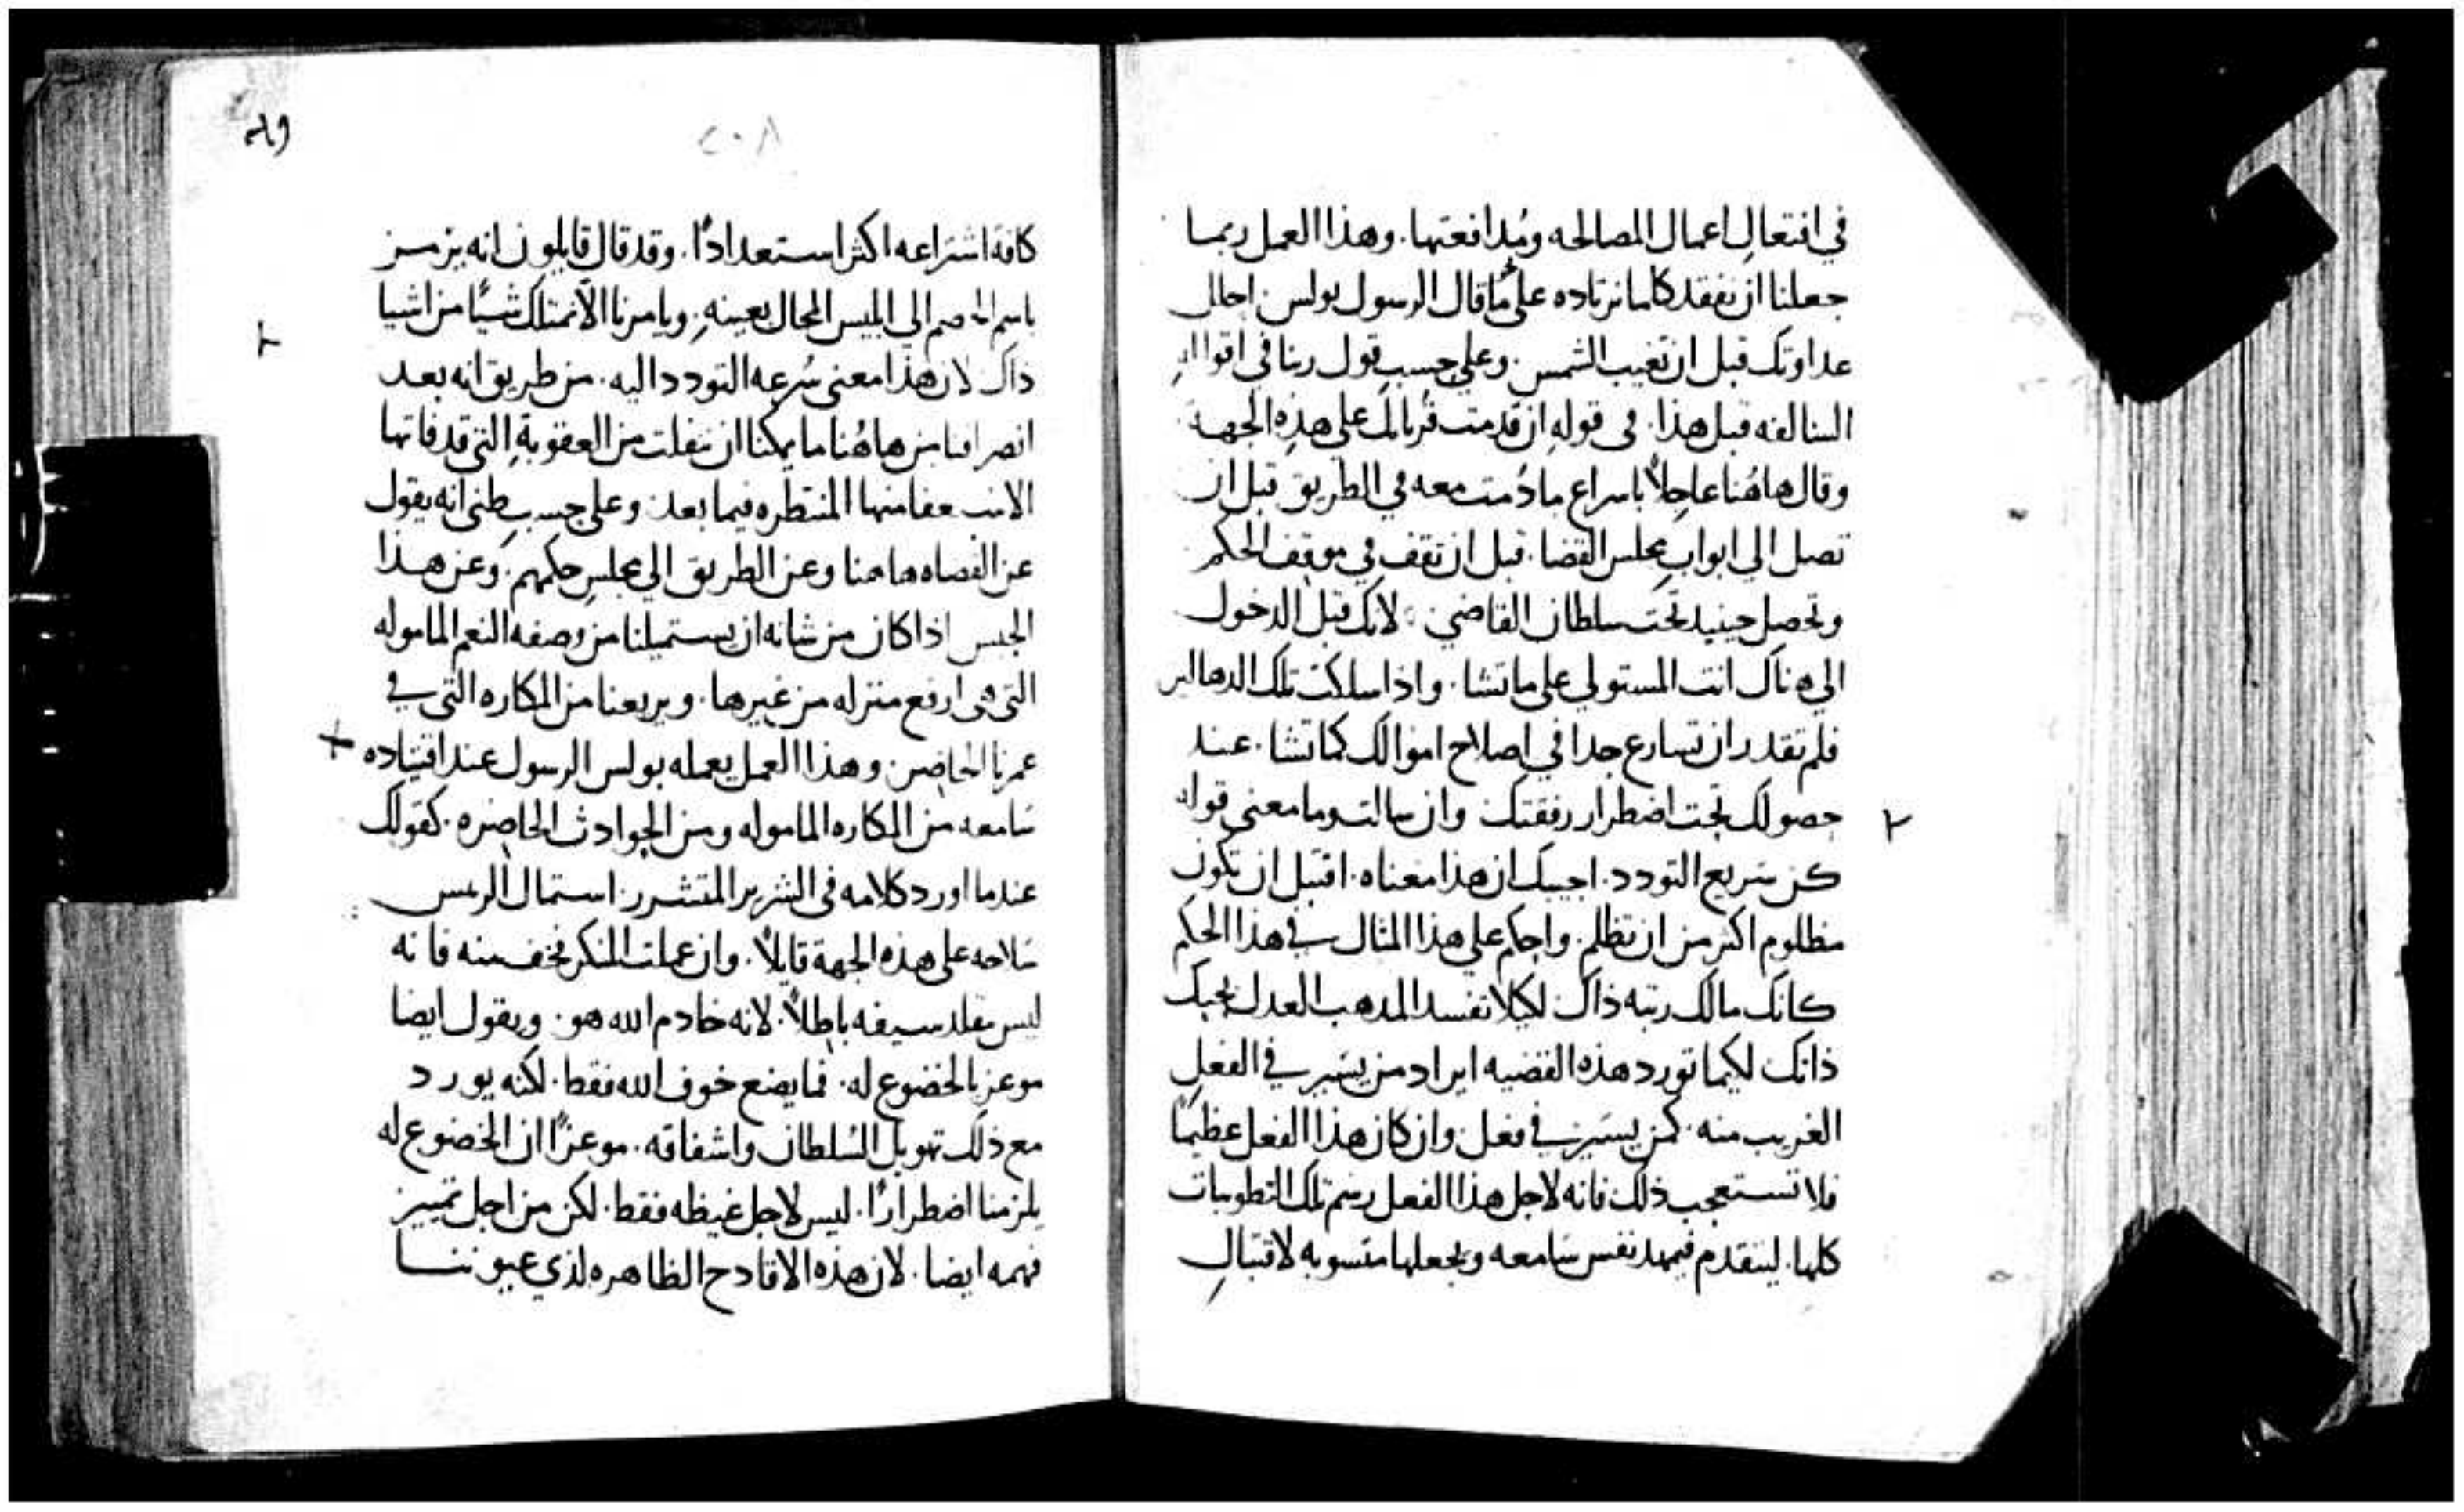 في افتعال اعمال المصالحه ومُدافعتها. وهذا العمل ربما
جعلنا ان نفقد كلما نرتاده على ما قال الرسول بولس
عداوتك قبل ان تغيب الشمس. وعلى حسب قول ربنا في
السالفه قبل هذا. في قوله ان قدمت قُربانك على هذِهِ الجهه
وقال هاهُنا عاجِلاً باسراع مادُمت معه في الطريق قبل ان
تصل الي ابواب مجلس القضا. قبل ان تقف في موقف الحكم
وتحصل حينيد تحت سلطان القاضي. لانك قبل الدخول
الي هناك انت المستولي على ما تشا. واذا سلكت تلك
فلم تقدر ان تسارع جدا في اصلاح اموالك كما تشا. عند
حصولك تحت اضطرار رفقتك وان سالت وما معنى قوله
كن سريع التودد. اجيبك ان هذا معناه. اقتبل ان تكون
مظلوم اكثر من ان تظلم. واحكم على هذا المثال في هذا الحكم
كانك مالك رتبه ذاك لكيلا تفسد المدهب العدل بحبك
ذاتك لكيما تورد هذه القضيه ايراد من يسَير في الفعلِ
الغريب منه. كمن يسَير في فعل وان كان هذا الفعل عظيماً
فلا تستعجب ذلك فانه لاجل هذا الفعل رسم تلك التطوبيات
كلها. ليتقدم فيمهد نفس سَامعه ويجعلها منسوبه لاقتبالِ
٢
٢٠٨
كافة اشتراعه اكثر استعدادًا. وقد قال قايلون انه يرمز
باسم الخصم الي ابليس المحال بعينهِ. ويامرنا الاّ نمتلك شيئًا من اشيا
ذاك لان هذا معنى سُرعه التودد اليه. من طريق انه بعد
انصرافنا من هاهُنا ما يمكنا ان ننفلت من العقوبةِ التي قد فاتها
منها المنتظره فيما بعد. وعلى حسب ظني انه يقول
عن القضاه هاهنا وعن الطريق الي مجلس حكمهم. وعن هذا
الحبس اذا كان من شانه ان يستميلنا من وصفه النعم الماموله
التي هى ارفع منزله من غيرها. ويريعنا من المكاره التي في
عمرنا الحاضر. وهذا العمل يعمله بولس الرسول عند اقتياده
سَامعه من المكاره الماموله ومن الحوادث الحاضره. كقولك
عندما اورد كلامه في الشرير المتشرر. استمال الرييس
سلاحه على هذه الجهة قايلاً. وان عملت المنكر فخف منه فانه
ليس مقلد سيفه باطلاً. لانه خادم الله هو. ويقول ايضا
موعز بالخضوع له. فما يضع خوف الله فقط. لكنه يورد
مع ذلك تهويل السُلطان واشفاقه. موعزًا ان الخضوع له
يلزمنا اضطرارًا. ليس لاجل غيظه فقط. لكن من اجل تمييز
فهمه ايضا. لان هذه الاقادح الظاهره لذي عيوننا